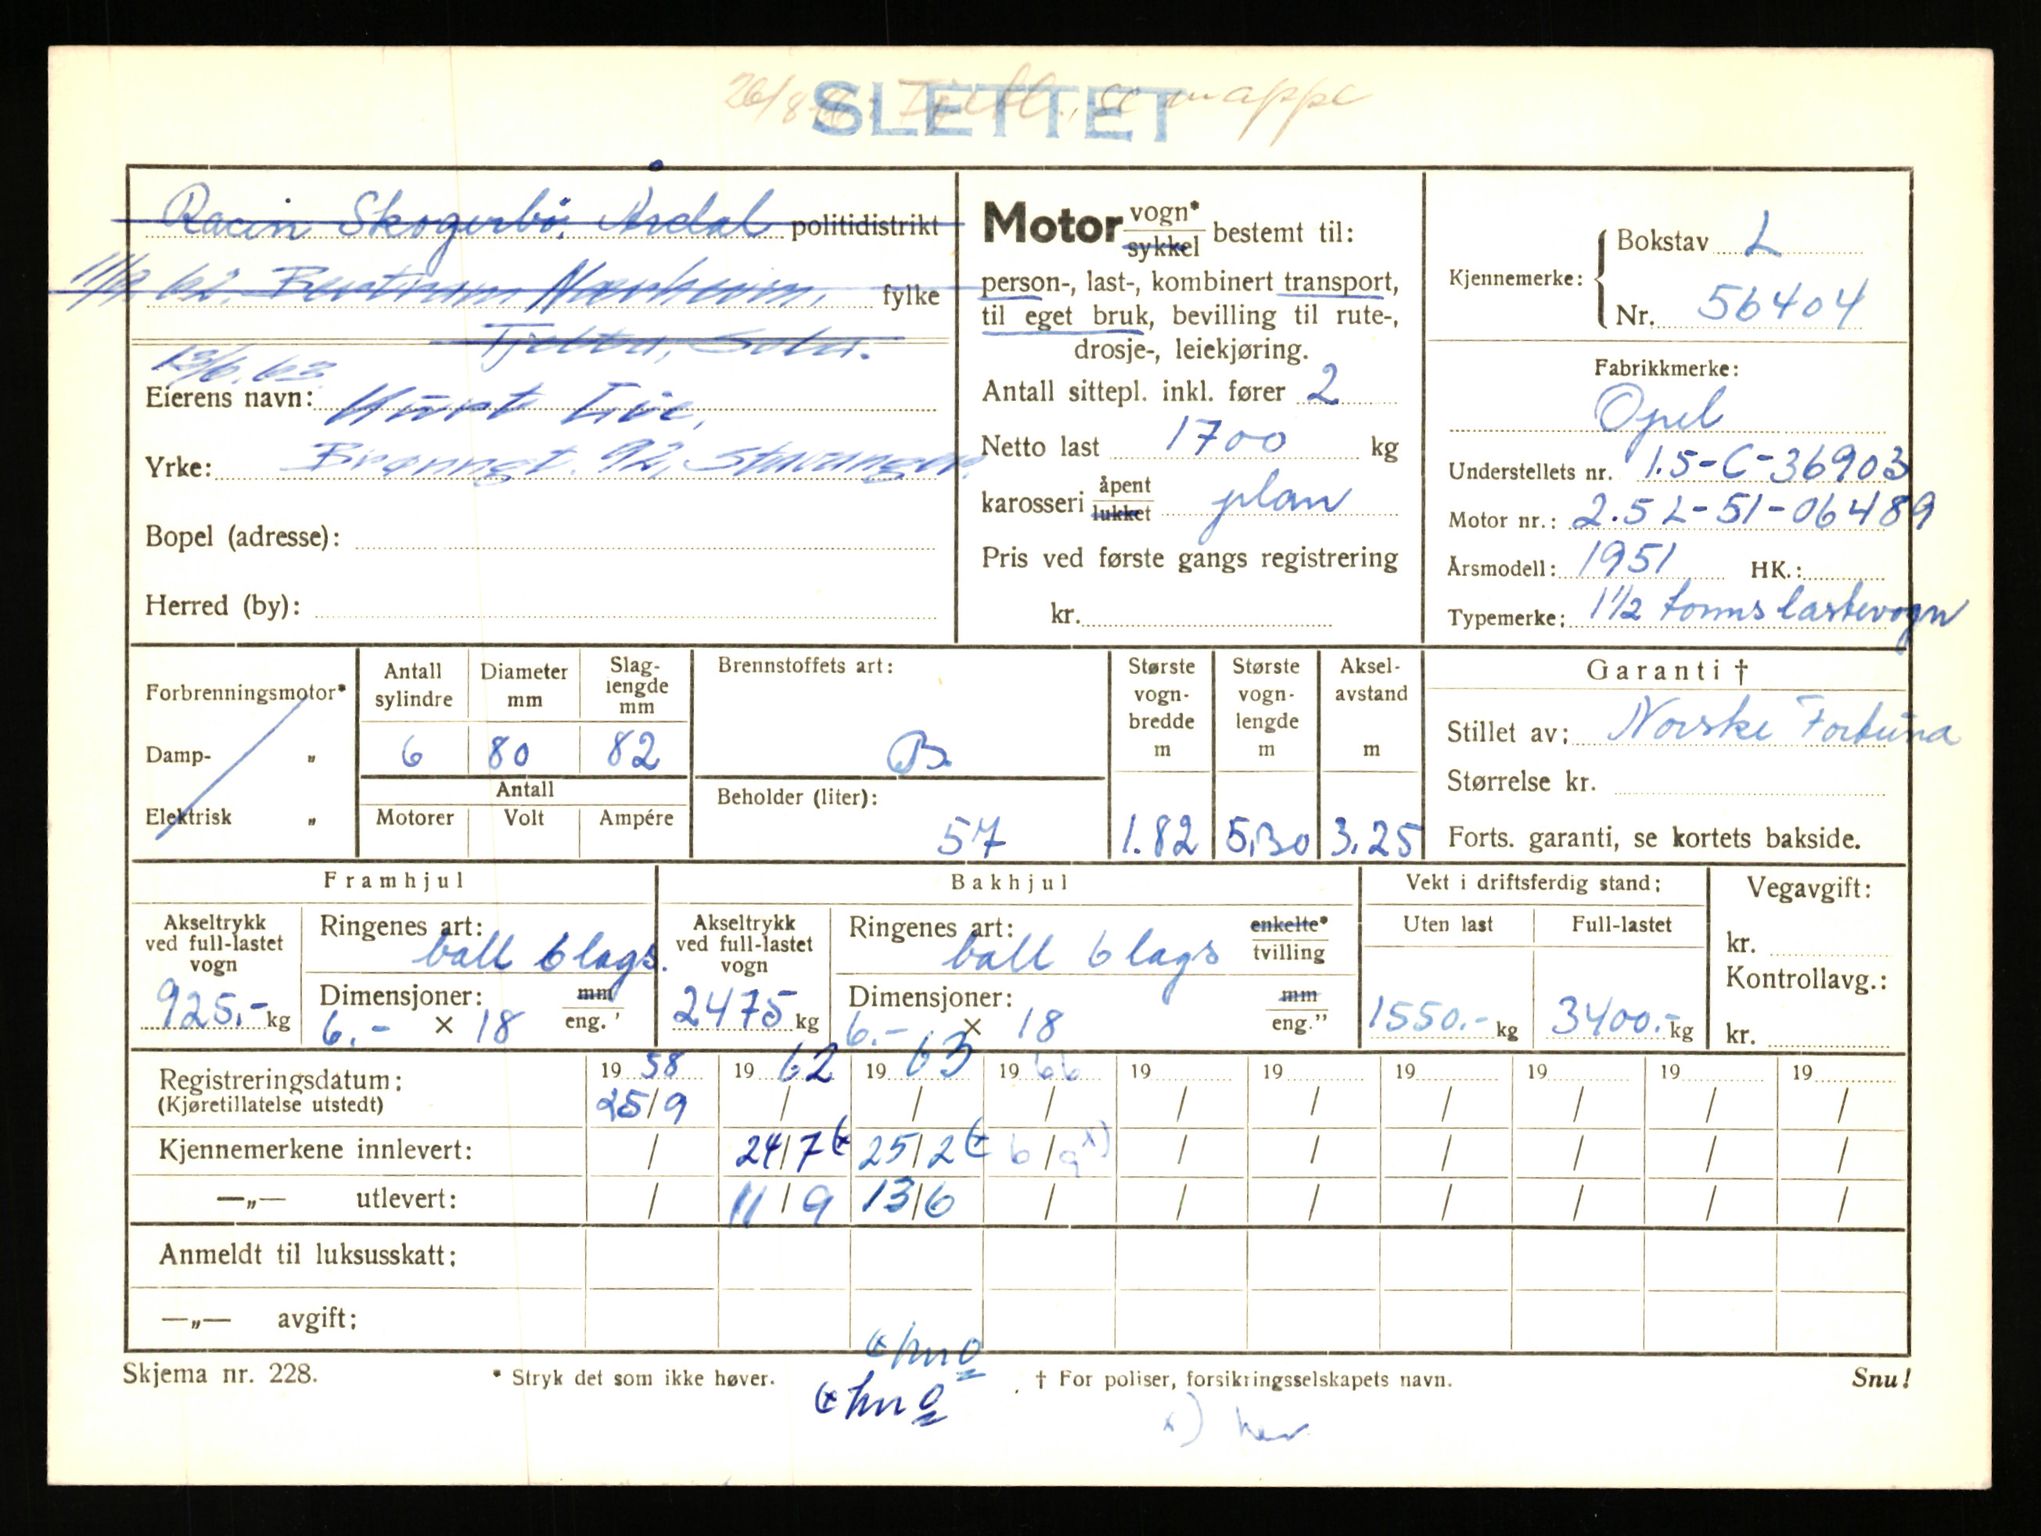 SLETTET
se mappe
Racin Skogerbö, Årdal politidistrikt
11/9 62. Bertram Nærheim, fylke
Tjelta, Sola.
13/6.63.
Eierens navn: Kurt Lie,
Yrke: Brønngt. 92, Stavanger.
Bopel (adresse):
Herred (by):
Motor vogn* sykkel bestemt til:
person-, last-, kombinert transport,
til eget bruk, bevilling til rute-,
drosje-, leiekjøring.
Antall sittepl. inkl. fører 2
Netto last 1700 kg
karosseri åpent lukket plan
Pris ved første gangs registrering
kr.
Kjennemerke: Bokstav L
Nr. 56404
Fabrikkmerke:
Opel
Understellets nr. 1.5-C-36903
Motor nr.: 2.5 L-51-06489
Årsmodell: 1951 HK.:
Typemerke: 1 1/2 tonns lastevogn
Forbrenningsmotor*
Damp- „
Elektrisk „
Antall sylindre 6
Diameter mm 80
Slag-lengde mm 82
Antall
Motorer Volt Ampére
Brennstoffets art:
B.
Beholder (liter):
57
Største vogn-bredde m 1.82
Største vogn-lengde m 5.30
Aksel-avstand m 3.25
Garanti †
Stillet av: Norske Fortuna
Størrelse kr.
Forts. garanti, se kortets bakside.
Framhjul
Akseltrykk ved full-lastet vogn 925.- kg
Ringenes art: ball 6 lags.
Dimensjoner: mm eng."
6.- × 18
Bakhjul
Akseltrykk ved full-lastet vogn 2475 kg
Ringenes art: ball 6 lags enkelte* tvilling
Dimensjoner: mm eng."
6.- × 18
Vekt i driftsferdig stand:
Uten last 1550.- kg
Full-lastet 3400.- kg
Vegavgift:
kr.
Kontrollavg.:
kr.
Registreringsdatum: 19 58 19 62 19 63 19 66 19 19 19 19 19 19
(Kjøretillatelse utstedt) 25/9 / / / / / / / / /
Kjennemerkene innlevert: / 24/7 25/2 6/9 x) / / / / / /
—„— utlevert: / 11/9 13/6 / / / / / / /
Anmeldt til luksusskatt:
—„— avgift:
Skjema nr. 228.
* Stryk det som ikke høver.
† For poliser, forsikringsselskapets navn.
Snu!
x) her